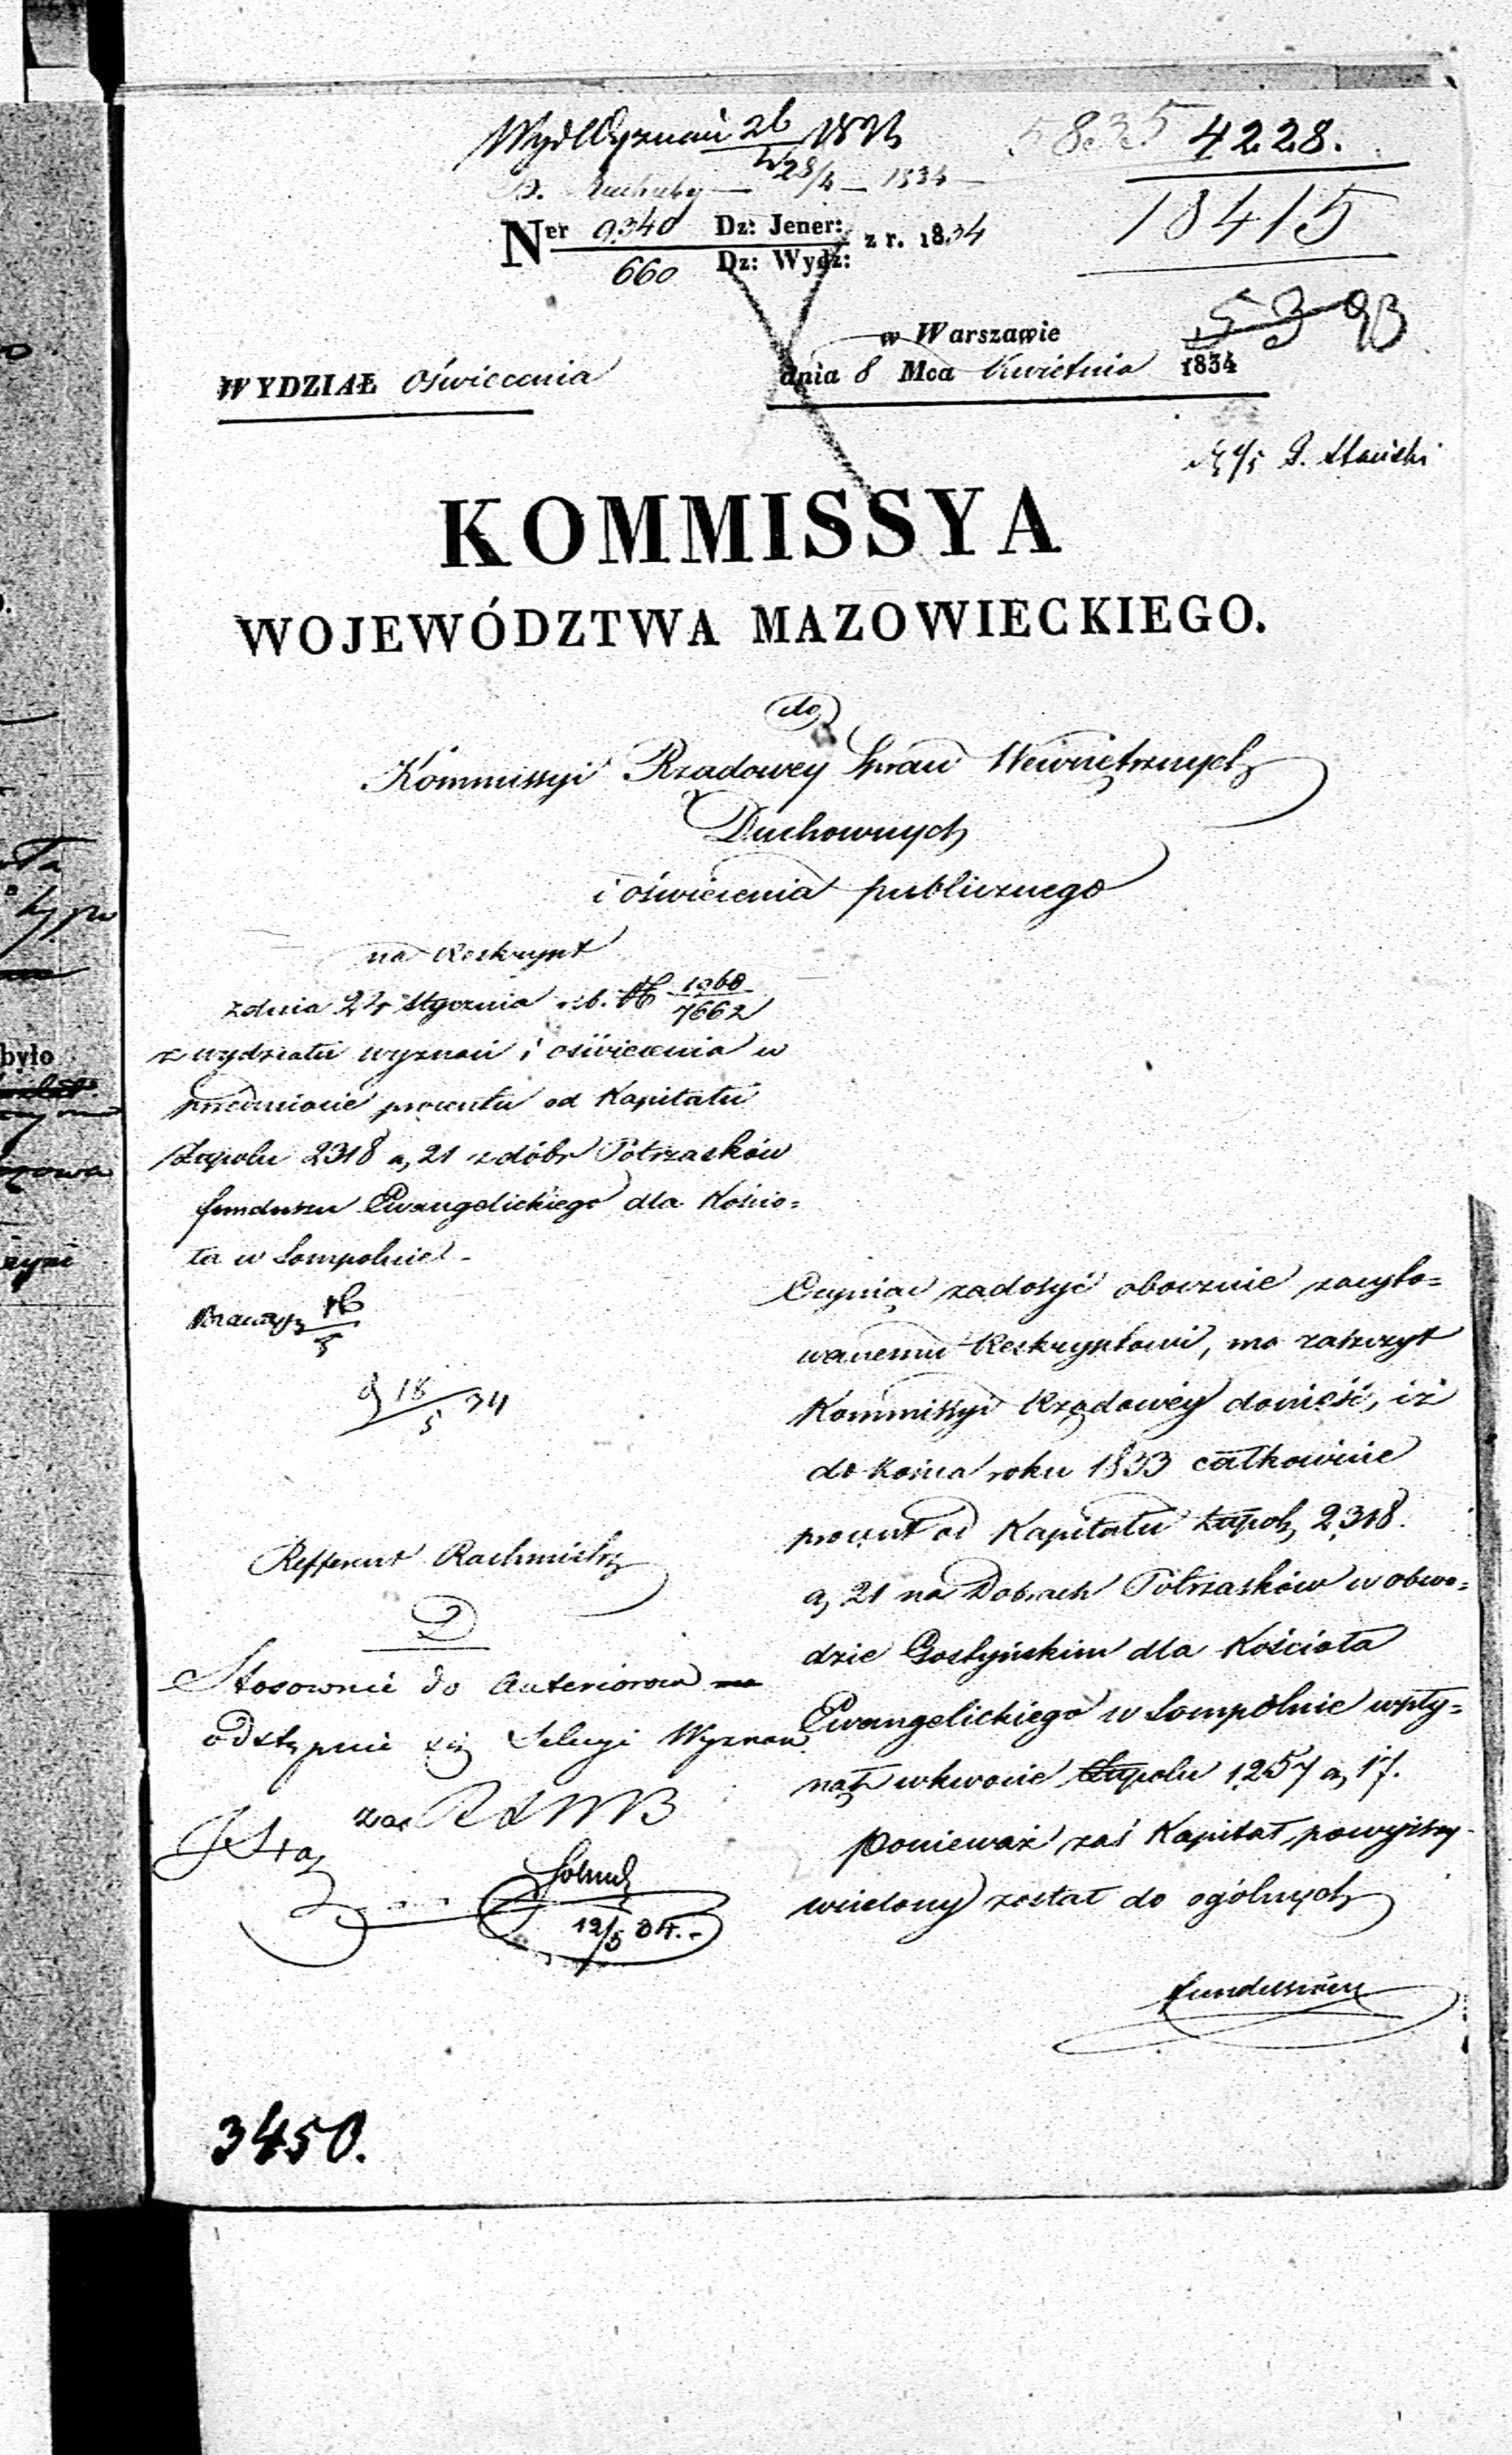 Wydl Wyznań 26/4 1834
28/4 — 1834
5835 4228.
18415
Ner 9340 Dz: Jener: z r. 1834
660 Dz: Wydz:
5393
w Warszawie
WYDZIAŁ Oświecenia dnia 8 Mca Kwietnia 1834
KOMMISSYA
WOJEWÓDZTWA MAZOWIECKIEGO.
do
Kommissyi Rządowey Spraw Wewnętrznych
Duchownych
i oświecenia publicznego
na Reskrypt
z dnia 24 Stycznia r.b. N 1968/7662
z wydziału wyznań i oświecenia w
przedmiocie procentu od Kapitału
Złłpolu 2318 g, 21 z dóbr Potrzasków
funduszu Ewangelickiego dla Kościo=
ła w Sompolnie
18/5 34
Refferent Rachmistrz
D
Stosownie do anteriorow
odstąpnie się Sekcyi Wyznań
12/5 34.-
Czyniąc zadosyć obocznie zacyto=
wanemu Reskryptowi, ma zaszczyt
Kommissyi Rządowéy donieść, iż
do końca roku 1833 całkowicie
procent od Kapitału Złłpolu 2318.
g, 21 na Dobrach Potrzasków w obwo=
dzie Gostyńskim dla Kościoła
Ewangelickiego w Sompolnie wpły=
nął w kwocie Złłpolu 1257 g, 17.
Ponieważ zaś Kapitał powyższy
wcielony został do ogólnych
funduszów
3450.